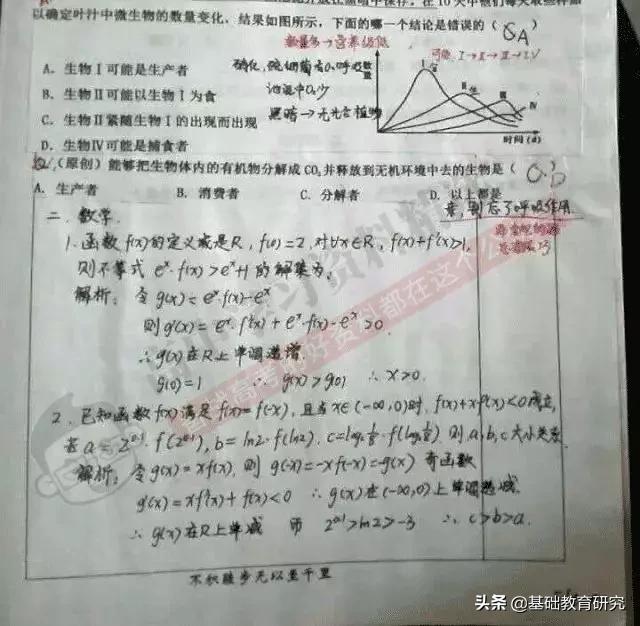 以确定叶汁中微生物的数量变化，结果如图所示，下面的哪一个结论是错误的（
A
数量多→营养级低
可能 I→II→III→IV
A. 生物Ⅰ可能是生产者
B. 生物Ⅱ可能以生物Ⅰ为食
池泥中O₂少
C. 生物Ⅱ紧随生物Ⅰ的出现而出现
黑暗→无光合植物
D. 生物Ⅳ可能是捕食者
数量
时间(d)
（原创）能够把生物体内的有机物分解成CO₂并释放到无机环境中去的生物是（
D
A. 生产者 B. 消费者 C. 分解者 D. 以上都是
别忘了呼吸作用
二、数学.
1. 函数f(x)的定义域是R, f(0)=2, 对∀x∈R, f(x)+f'(x)>1,
则不等式 eˣ·f(x)>eˣ+1 的解集为,
解析：令g(x)=eˣ·f(x)-eˣ
则g'(x)=eˣ·f'(x)+eˣ·f(x)-eˣ>0
∴g(x)在R上单调递增.
g(0)=1 ∴ g(x)>g(0) ∴ x>0.
2. 已知函数f(x)满足f(x)=f(-x), 且当x∈(-∞,0)时, f(x)+xf'(x)<0成立,
若a=2^0.1·f(2^0.1), b=ln2·f(ln2), c=log₂⅛·f(log₂⅛) 则a,b,c大小关系
解析：令g(x)=xf(x), 则 g(-x)=-xf(-x)=-g(x) 奇函数
g'(x)=xf'(x)+f(x)<0 ∴g(x)在(-∞,0)上单调递减.
∴g(x)在R上单减 而 2^0.1>ln2>-3 ∴ c>b>a.
不积跬步无以至千里
头条 @基础教育研究